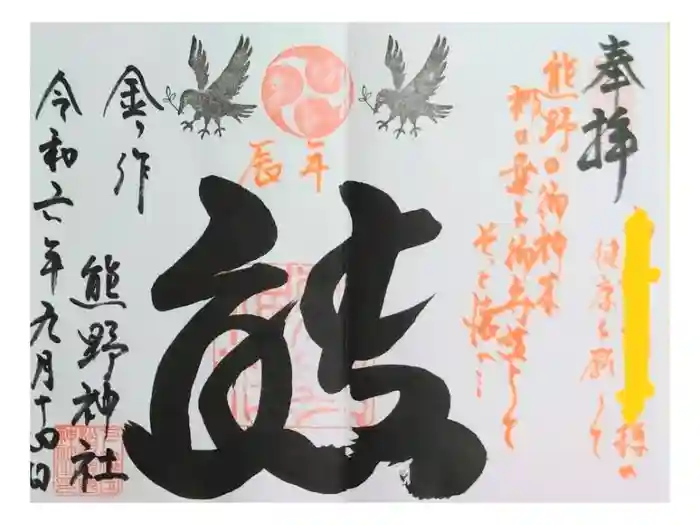 奉拝
様の
健康を願って
熊野の御神木
梛の葉を御守護として
辰年
熊
金ヶ作
熊野神社
令和六年九月十四日